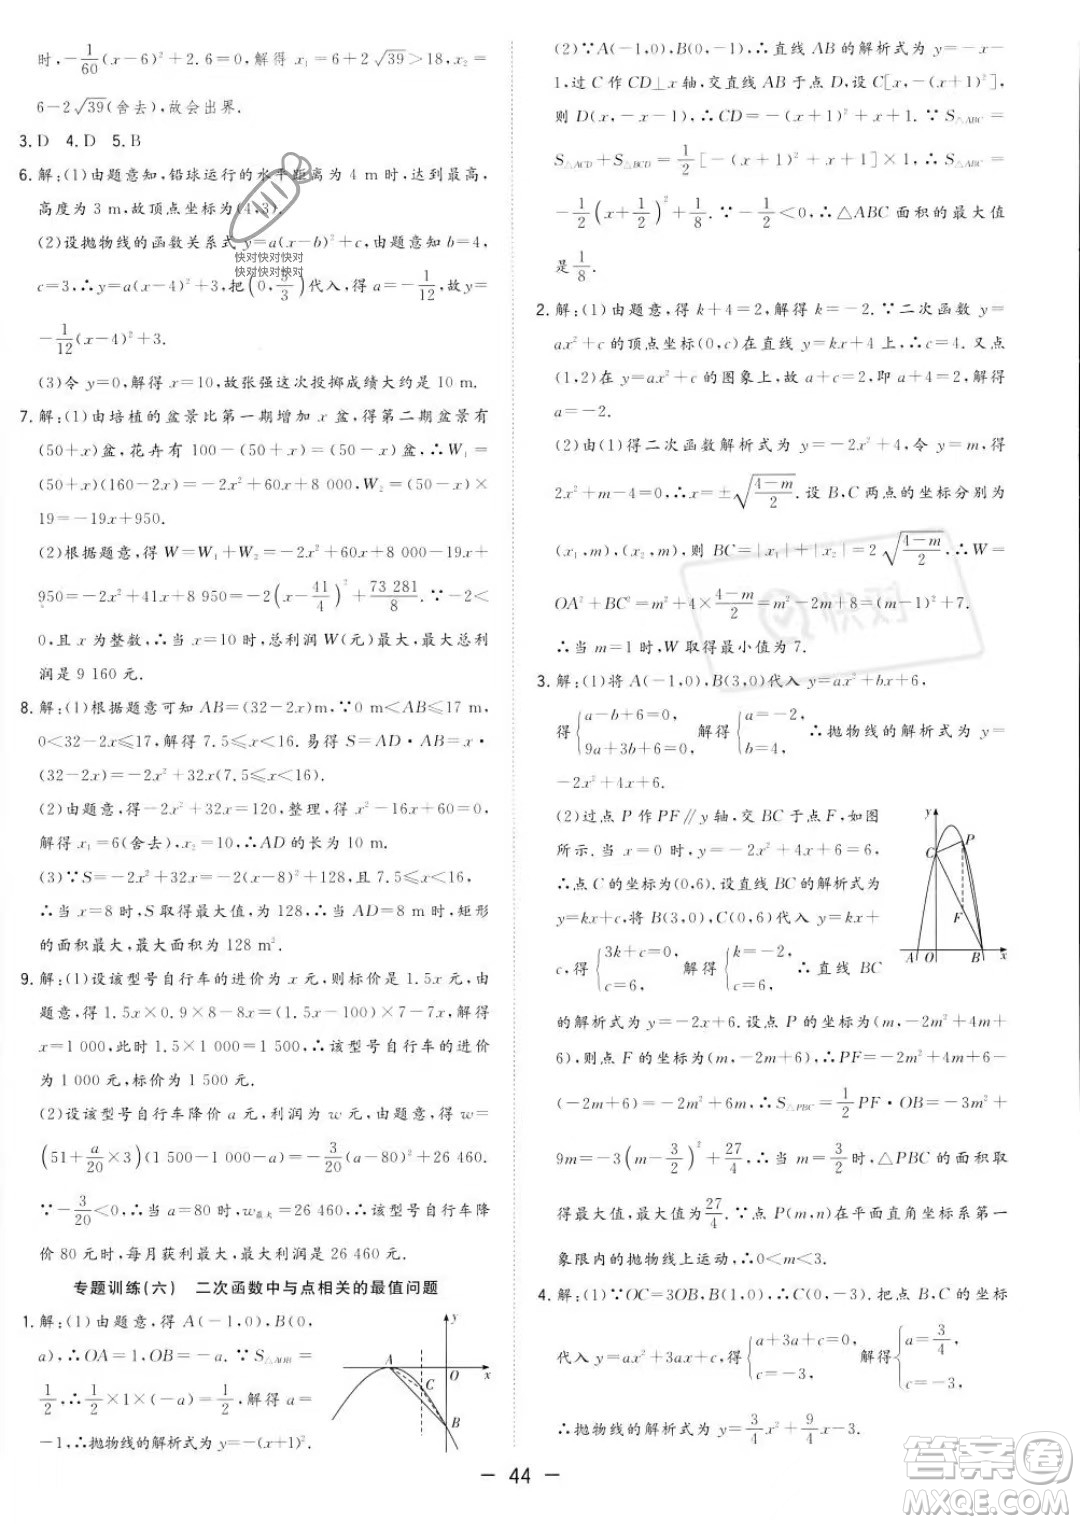 时,-1/60(x-6)²+2.6=0,解得 x₁=6+2√39>18,x₂=
6-2√39(舍去),故会出界.
3. D 4. D 5. B
6. 解:(1)由题意知,铅球运行的水平距离为 4 m时,达到最高,
高度为 3 m,故顶点坐标为(4,3).
(2)设抛物线的函数关系式 y=a(x-b)²+c,由题意知 b=4,
c=3,∴y=a(x-4)²+3,把(0,5/3)代入,得 a=-1/12,故y=
-1/12(x-4)²+3.
(3)令 y=0,解得 x=10,故张强这次投掷成绩大约是 10 m.
7. 解:(1)由培植的盆景比第一期增加 x 盆,得第二期盆景有
(50+x)盆,花卉有 100-(50+x)=(50-x)盆,∴W₁=
(50+x)(160-2x)=-2x²+60x+8 000,W₂=(50-x)×
19=-19x+950.
(2)根据题意,得 W=W₁+W₂=-2x²+60x+8 000-19x+
950=-2x²+41x+8 950=-2(x-41/4)²+73 281/8.∵-2<
0,且 x 为整数,∴当 x=10时,总利润 W(元)最大,最大总利
润是 9 160 元.
8. 解:(1)根据题意可知 AB=(32-2x)m,∵0<AB≤17,∴
0<32-2x≤17,解得 7.5≤x<16.易得 S=AD·AB=x·
(32-2x)=-2x²+32x(7.5≤x<16).
(2)由题意,得-2x²+32x=120,整理,得 x²-16x+60=0,
解得 x₁=6(舍去),x₂=10.∴AD的长为 10 m.
(3)∵S=-2x²+32x=-2(x-8)²+128,且 7.5≤x<16,
∴当 x=8时,S取得最大值,为 128,∴当 AD=8 m时,矩形
的面积最大,最大面积为 128 m².
9. 解:(1)设该型号自行车的进价为 x 元,则标价是 1.5x元,由
题意,得 1.5x×0.9×8-8x=(1.5x-100)×7-7x,解得
x=1 000,此时 1.5×1 000=1 500,∴该型号自行车的进价
为 1 000 元,标价为 1 500 元.
(2)设该型号自行车降价 a 元,利润为 w 元,由题意,得 w=
(51+a/20×3)(1 500-1 000-a)=-3/20(a-80)²+26 460.
∵-3/20<0,∴当 a=80 时,w最大=26 460,∴该型号自行车降
价 80 元时,每月获利最大,最大利润是 26 460 元.
专题训练(六) 二次函数中与点相关的最值问题
1. 解:(1)由题意,得 A(-1,0),B(0,
a),∴OA=1,OB=-a.∵S△AOB=
1/2,∴1/2×1×(-a)=1/2,解得 a=
-1,∴抛物线的解析式为 y=-(x+1)².
y
A O x
C
B
(2)∵A(-1,0),B(0,-1),∴直线 AB的解析式为 y=-x-
1,过 C 作 CD⊥x 轴,交直线 AB 于点 D,设 C[x,-(x+1)²],
则 D(x,-x-1),∴CD=-(x+1)²+x+1.∵S△ABC=
S△ACD+S△BCD=1/2[-(x+1)²+x+1]×1=
-1/2(x+1/2)²+1/8.∵-1/2<0,∴△ABC 面积的最大值
是1/8.
2. 解:(1)由题意,得 k+4=2,解得 k=-2.∵二次函数 y=
ax²+c的顶点坐标(0,c)在直线 y=kx+4上,∴c=4.又点
(1,2)在 y=ax²+c的图象上,故 a+c=2,即 a+4=2,解得
a=-2.
(2)由(1)得二次函数解析式为 y=-2x²+4,令 y=m,得
2x²+m-4=0,∴x=±√(4-m)/2.设 B,C 两点的坐标分别为
(x₁,m),(x₂,m),则 BC=|x₁|+|x₂|=2√(4-m)/2.∴W=
OA²+BC²=m²+4×(4-m)/2=m²-2m+8=(m-1)²+7.
∴当 m=1 时,W 取得最小值为 7.
3. 解:(1)将 A(-1,0),B(3,0)代入 y=ax²+bx+6,
得{a-b+6=0, 9a+3b+6=0,解得{a=-2, b=4,∴抛物线的解析式为 y=
-2x²+4x+6.
(2)过点 P 作 PF∥y轴,交 BC于点F,如图
所示.当 x=0时,y=-2x²+4x+6=6,
∴点C的坐标为(0,6).设直线BC的解析式为
y=kx+c,将 B(3,0),C(0,6)代入 y=kx+
c,得{3k+c=0, c=6,解得{k=-2, c=6,∴直线 BC
的解析式为 y=-2x+6.设点 P 的坐标为(m,-2m²+4m+
6),则点 F 的坐标为(m,-2m+6),∴PF=-2m²+4m+6-
(-2m+6)=-2m²+6m,∴S△PBC=1/2PF·OB=-3m²+
9m=-3(m-3/2)²+27/4,∴当 m=3/2时,△PBC的面积取
得最大值,最大值为27/4.∵点 P(m,n)在平面直角坐标系第一
象限内的抛物线上运动,∴0<m<3.
y
C P
F
A O B x
4. 解:(1)∵OC=3OB,B(1,0),∴C(0,-3).把点 B,C 的坐标
代入 y=ax²+3ax+c,得{a+3a+c=0, c=-3,解得{a=3/4, c=-3,
∴抛物线的解析式为 y=3/4x²+9/4x-3.
— 44 —
快对快对快对
快对快对快对
快对
答案圈
MXQE.COM